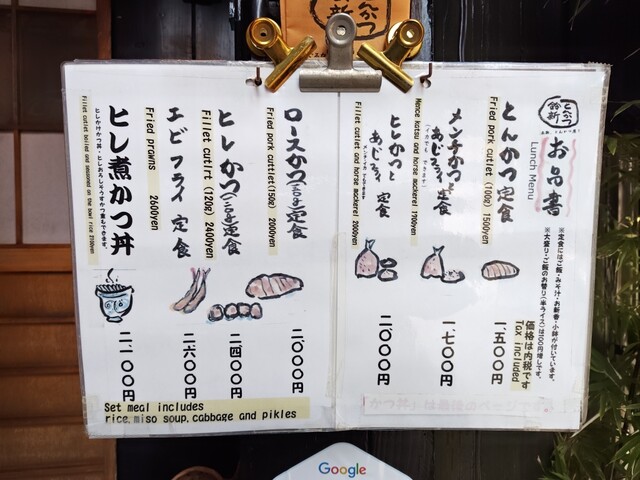 とんかつ
鈴新
お品書
Lunch Menu
※定食にはご飯・みそ汁・お新香・小鉢が付いています。
※大盛り・ご飯のお替り(半ライス)は100円増しです。
価格は内税です
Tax included
とんかつ定食
Fried pork cutlet (100g) 1500yen
一、五〇〇円
メンチかつと
あじフライ定食
(イカでもできます)
Mence katsu and horse mackerel 1700yen
一、七〇〇円
ヒレかつと
あじフライ定食
Fillet cutlet and horse mackerel 2000yen
二、〇〇〇円
ロースかつ(150g)定食
Fried pork cuttlet(150g) 2000yen
二、〇〇〇円
ヒレかつ(120g)定食
Fillet cutlrt (120g) 2400yen
二、四〇〇円
エビフライ定食
Fried prawns 2600yen
二、六〇〇円
ヒレ煮かつ丼
ヒレかけかつ丼・ヒレおろしそうすかつ重もできます。
Fillet cutlet boiled and seasoned on the bowl rice 2100yen
二、一〇〇円
Set meal includes
rice, miso soup, cabbage and pikles
Google